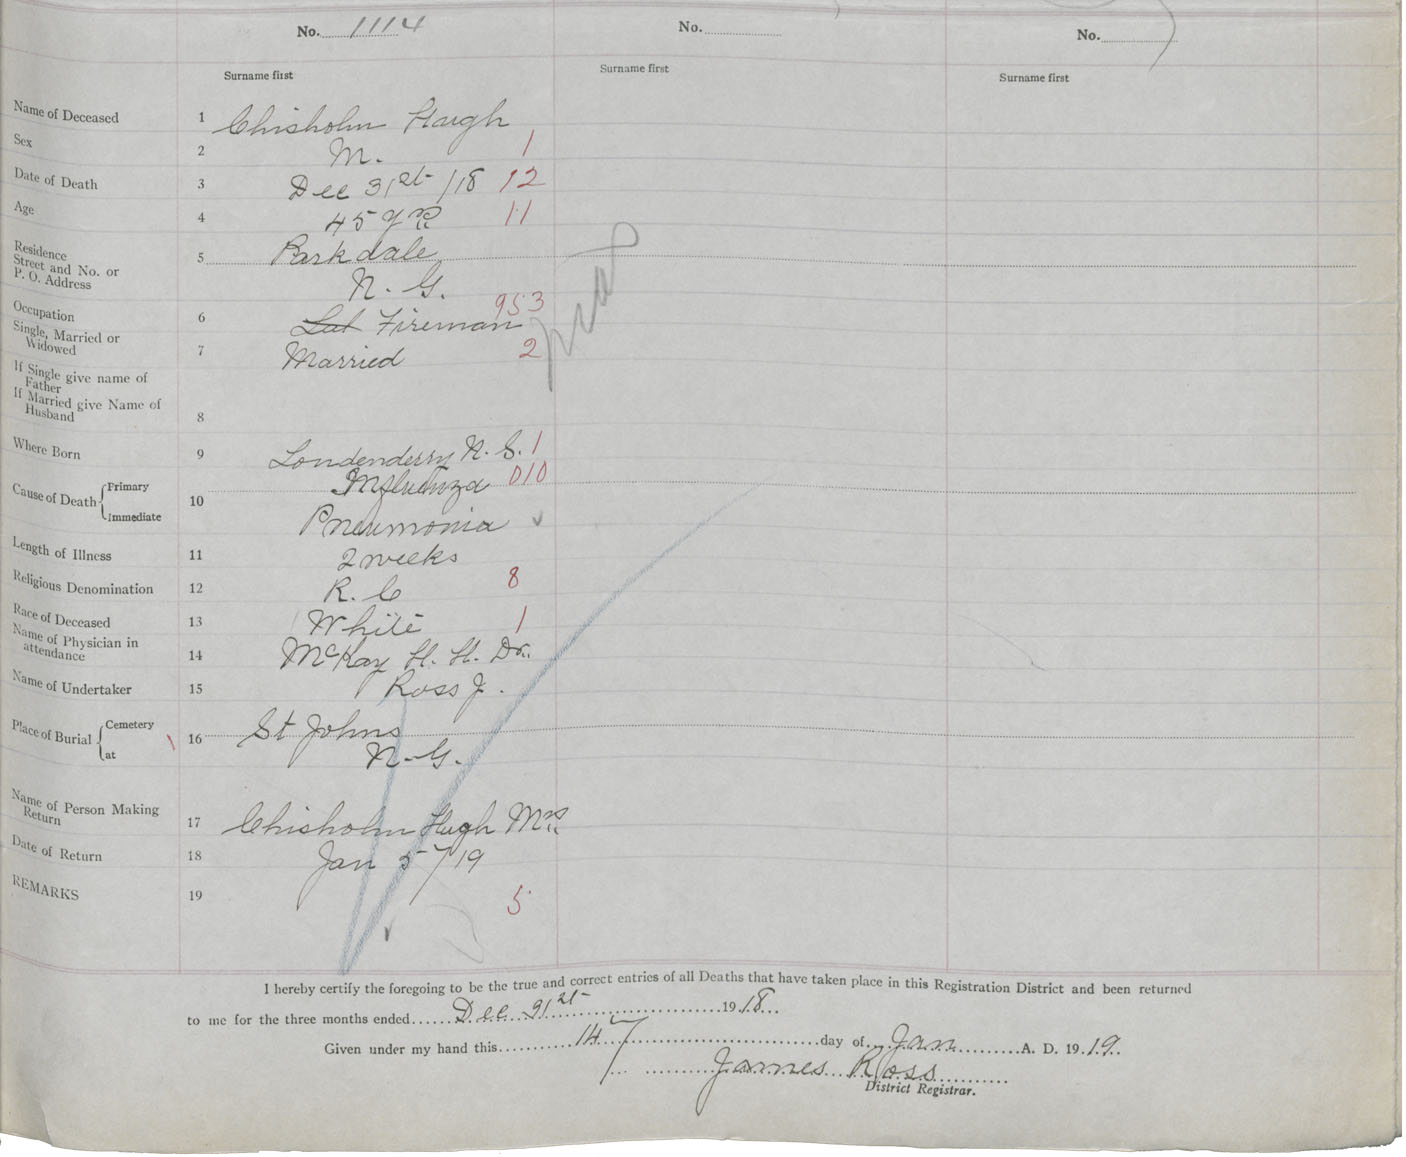 No. 1114
No.
No.
Surname first
Surname first
Surname first
Name of Deceased 1 Chisholm Haugh
Sex 2 M. 1
Date of Death 3 Dec 31st /18 12
Age 4 45 yrs 11
Residence
Street and No. or
P. O. Address
5 Parkdale
N. G.
953
Occupation 6 Lab Fireman
Single, Married or
Widowed
7 Married 2
If Single give name of
Father
If Married give Name of
Husband
8
Where Born 9 Londenderry N. S. 1
Cause of Death Primary Immediate 10
Influenza 010
Pneumonia
Length of Illness 11 2 weeks
Religious Denomination 12 R. C 8
Race of Deceased 13 White 1
Name of Physician in
attendance
14 McKay H. H. Dr.
Name of Undertaker 15 Ross J.
Place of Burial Cemetery at 16
St Johns
N. G.
Name of Person Making
Return
17 Chisholm Hugh Mrs
Date of Return 18 Jan 5/19
REMARKS 19 5
I hereby certify the foregoing to be the true and correct entries of all Deaths that have taken place in this Registration District and been returned
to me for the three months ended Dec 31st 1918
Given under my hand this 14 day of Jan A. D. 1919.
James Ross
District Registrar.